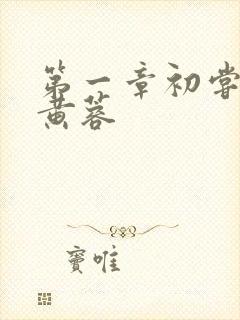 第一章初尝
黄蓉
窦唯